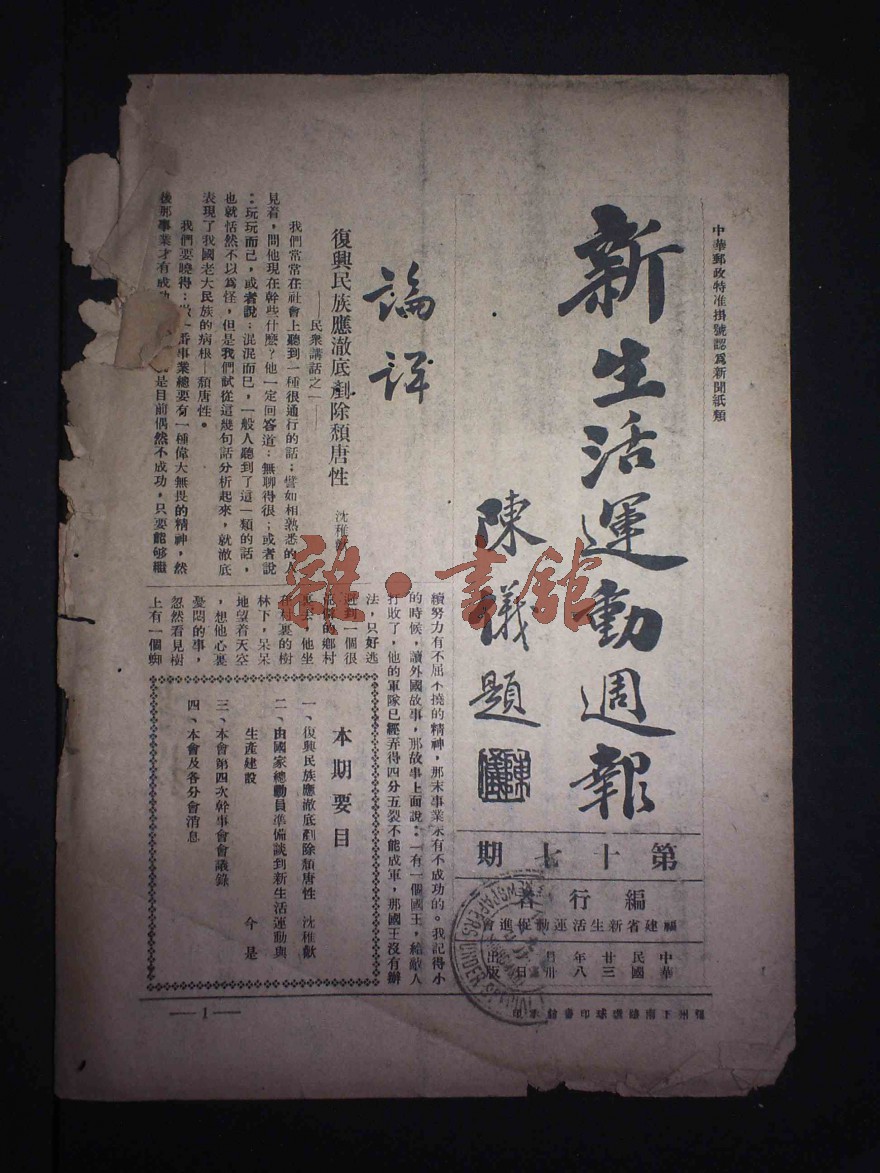 中華郵政特准掛號認爲新聞紙類
新生活運動週報
陳儀題
第十七期
編行者
福建省新生活運動促進會
中華民國
廿三年八月
卅日
出版
論評
復興民族應澈底剷除頹唐性
——民衆講話之一——
沈稚歡
我們常常在社會上聽到一種很通行的話；譬如相熟悉的人
見着，問他現在幹些什麽？他一定回答道：無聊得很；或者說
：玩玩而已，或者說：混混而已，一般人聽到了這一類的話，
也就恬然不以爲怪，但是我們試從這幾句話分析起來，就澈底
表現了我國老大民族的病根—頹唐性。
我們要曉得；做一番事業總要有一種偉大無畏的精神，然
後那事業才有成功
是目前偶然不成功，只要能够繼
續努力有不屈不撓的精神，那末事業永有不成功的。我記得小
的時候，讀外國故事，那故事上面說：—有一個國王，給敵人
打敗了，他的軍隊已經弄得四分五裂不能成軍，那國王沒有辦
法，只好逃
避到一個很
荒僻的鄉村
裏去，他坐
在村裏的樹
林下，呆呆
地望着天空
，想他心裏
憂悶的事，
忽然看見樹
上有一個蜘
本期要目
一、復興民族應澈底剷除頹唐性　沈稚歡
二、由國家總動員準備談到新生活運動與
生產建設　今是
三、本會第四次幹事會會議錄
四、本會及各分會消息
福州下南路環球印書館承印
—1—
雜·書館